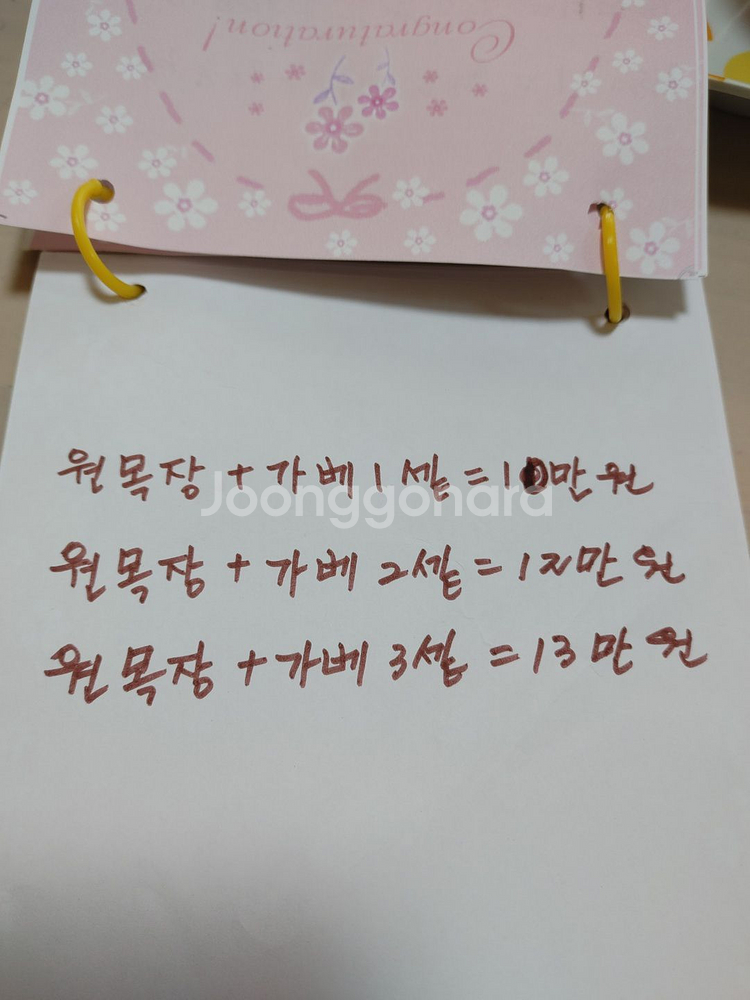 Congraturation!
원목장 + 가베 1셑 = 10만원
Joonggonara
원목장 + 가베 2셑 = 12만원
원목장 + 가베 3셑 = 13만원